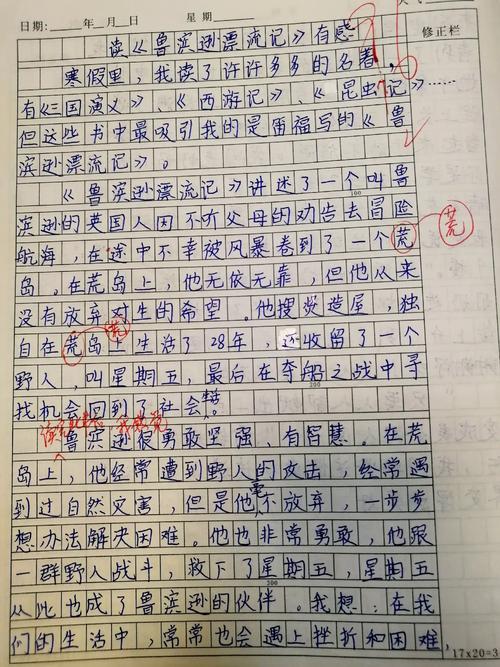 日期: 年 月 日 星期
修正栏
读《鲁滨逊漂流记》有感
寒假里，我读了许许多多的名著，
有《三国演义》、《西游记》、《昆虫记》……
但这些书中最吸引我的是雷福写的《鲁
滨逊漂流记》。
《鲁滨逊漂流记》讲述了一个叫鲁
100
滨逊的英国人因不听父母的劝告去冒险
航海，在途中不幸被风暴卷到了一个荒
荒
岛。在荒岛上，他无依无靠，但他从来
没有放弃对生的希望。他搜
造屋，独
荒
自在荒岛上生活了28年，还收留了一个
野人，叫星期五，最后在夺船之战中寻
200
找机会回到了社会
。
鲁滨逊很勇敢坚强、有智慧。在荒
岛上，他经常遭到野人的攻击，经常遇
到过自然灾害，但是他毫不放弃，一步步
想办法解决困难。他也非常勇敢，他跟
一群野人战斗，救下了星期五，星期五
300
从此也成了鲁滨逊的伙伴。我想：在我
们的生活中，常常也会遇上挫折和困难，
17×20=3